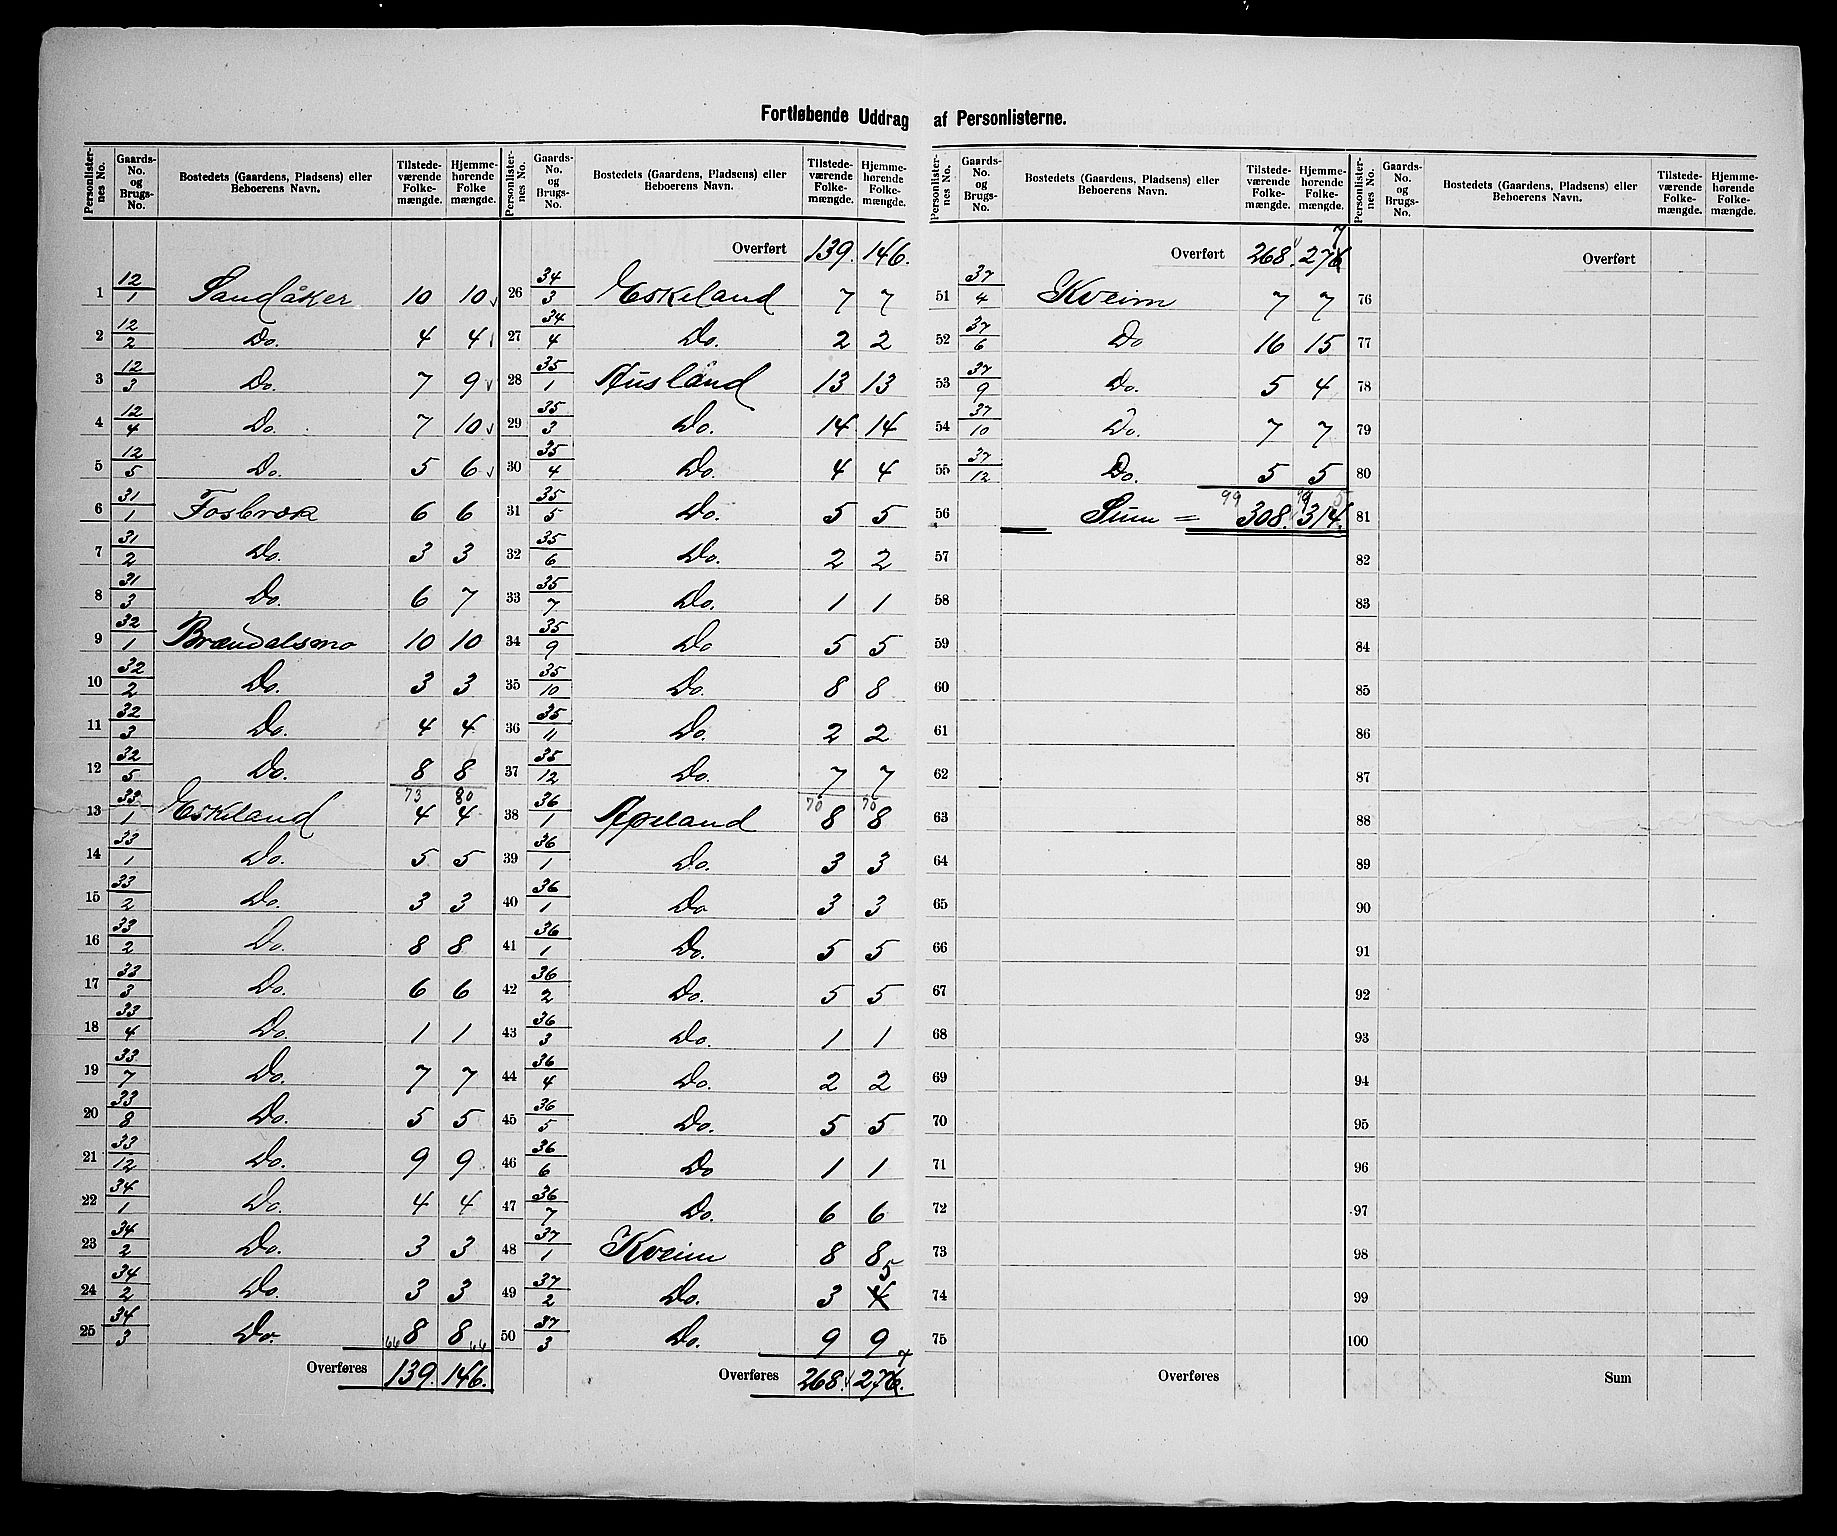 Fortløbende Uddrag af Personlisterne.
Personlister-nes No. Gaards-No. og Brugs-No. Bostedets (Gaardens, Pladsens) eller Beboerens Navn. Tilstede-værende Folke-mængde. Hjemme-hørende Folke mængde.
1 12/1 Sandåker 10 10
2 12/2 Do. 4 4
3 12/3 Do. 7 9
4 12/4 Do. 7 10
5 12/5 Do. 5 6
6 31/1 Fosbræk 6 6
7 31/2 Do. 3 3
8 31/3 Do. 6 7
9 32/1 Brændalsmo 10 10
10 32/2 Do. 3 3
11 32/3 Do. 4 4
12 32/5 Do. 8 8
73 80
13 33/1 Eskeland 4 4
14 33/1 Do. 5 5
15 33/2 Do. 3 3
16 33/2 Do. 8 8
17 33/3 Do. 6 6
18 33/4 Do. 1 1
19 33/7 Do. 7 7
20 33/8 Do. 5 5
21 33/12 Do. 9 9
22 34/1 Do. 4 4
23 34/2 Do. 3 3
24 34/2 Do. 3 3
25 34/3 Do. 8 8
66 66
Overføres 139. 146.
Personlister-nes No. Gaards-No. og Brugs-No. Bostedets (Gaardens, Pladsens) eller Beboerens Navn. Tilstede-værende Folke-mængde. Hjemme-hørende Folke-mængde.
Overført 139. 146.
26 34/3 Eskeland 7 7
27 34/4 Do. 2 2
28 35/1 Ausland 13 13
29 35/3 Do. 14 14
30 35/4 Do. 4 4
31 35/5 Do. 5 5
32 35/6 Do. 2 2
33 35/7 Do. 1 1
34 35/9 Do 5 5
35 35/10 Do. 8 8
36 35/11 Do. 2 2
37 35/12 Do. 7 7
70 70
38 36/1 Apeland 8 8
39 36/1 Do. 3 3
40 36/1 Do 3 3
41 36/1 Do. 5 5
42 36/2 Do. 5 5
43 36/3 Do. 1 1
44 36/4 Do. 2 2
45 36/5 Do. 5 5
46 36/6 Do 1 1
47 36/7 Do. 6 6
48 37/1 Kveim 8 8
49 37/2 Do. 3 4 5
50 37/3 Do. 9 9
Overføres 268. 276. 7
Personlister-nes No. Gaards-No. og Brugs-No. Bostedets (Gaardens, Pladsens) eller Beboerens Navn. Tilstede-værende Folke-mængde. Hjemme-hørende Folke-mængde.
Overført 268. 276 7
51 37/4 Kveim 7 7
52 37/6 Do 16 15
53 37/9 Do. 5 4
54 37/10 Do. 7 7
55 37/12 Do. 5 5
99 99 5
56 Sum = 308. 314.
57
58
59
60
61
62
63
64
65
66
67
68
69
70
71
72
73
74
75
Overføres
Personlister-nes No. Gaards-No. og Brugs-No. Bostedets (Gaardens, Pladsens) eller Beboerens Navn. Tilstede-værende Folke-mængde. Hjemme-hørende Folke-mængde.
Overført
76
77
78
79
80
81
82
83
84
85
86
87
88
89
90
91
92
93
94
95
96
97
98
99
100
Sum